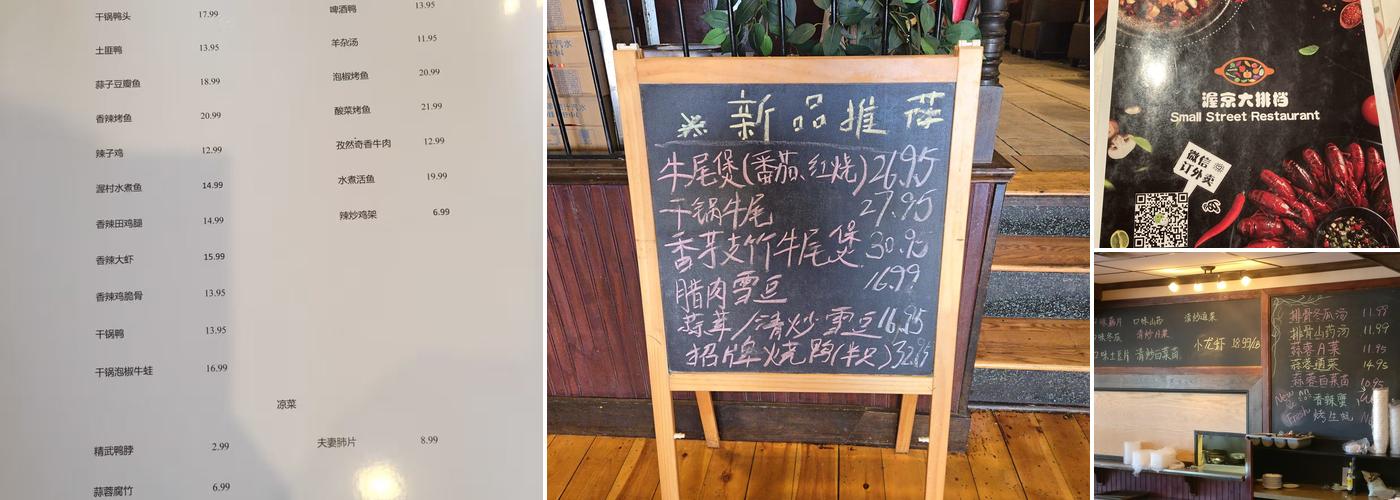 干锅鸭头 17.99
土匪鸭 13.95
蒜子豆瓣鱼 18.99
香辣烤鱼 20.99
辣子鸡 12.99
渥村水煮鱼 14.99
香辣田鸡腿 14.99
香辣大虾 15.99
香辣鸡脆骨 13.95
干锅鸭 13.95
干锅泡椒牛蛙 16.99
啤酒鸭 13.95
羊杂汤 11.95
泡椒烤鱼 20.99
酸菜烤鱼 21.99
孜然奇香牛肉 12.99
水煮活鱼 19.99
辣炒鸡架 6.99
凉菜
精武鸭脖 2.99
蒜蓉腐竹 6.99
夫妻肺片 8.99
新品推荐
牛尾煲(番茄、红烧) 26.95
干锅牛尾 27.95
香芋支竹牛尾煲 30.95
腊肉雪豆 16.99
蒜茸/清炒雪豆 16.95
招牌烧鸭(半只) 32.95
渥京大排档
Small Street Restaurant
微信
订外卖
口味藕片 口味山药 清炒通菜
口味冬瓜 清炒A菜
口味土豆片 清炒白菜苗
小龙虾 18.99/
排骨冬瓜汤 11.99
排骨山药汤 11.99
蒜蓉A菜 11.95
蒜蓉通菜 14.95
蒜蓉白菜苗 10.95
New 香辣蟹
Fresh 烤生蚝